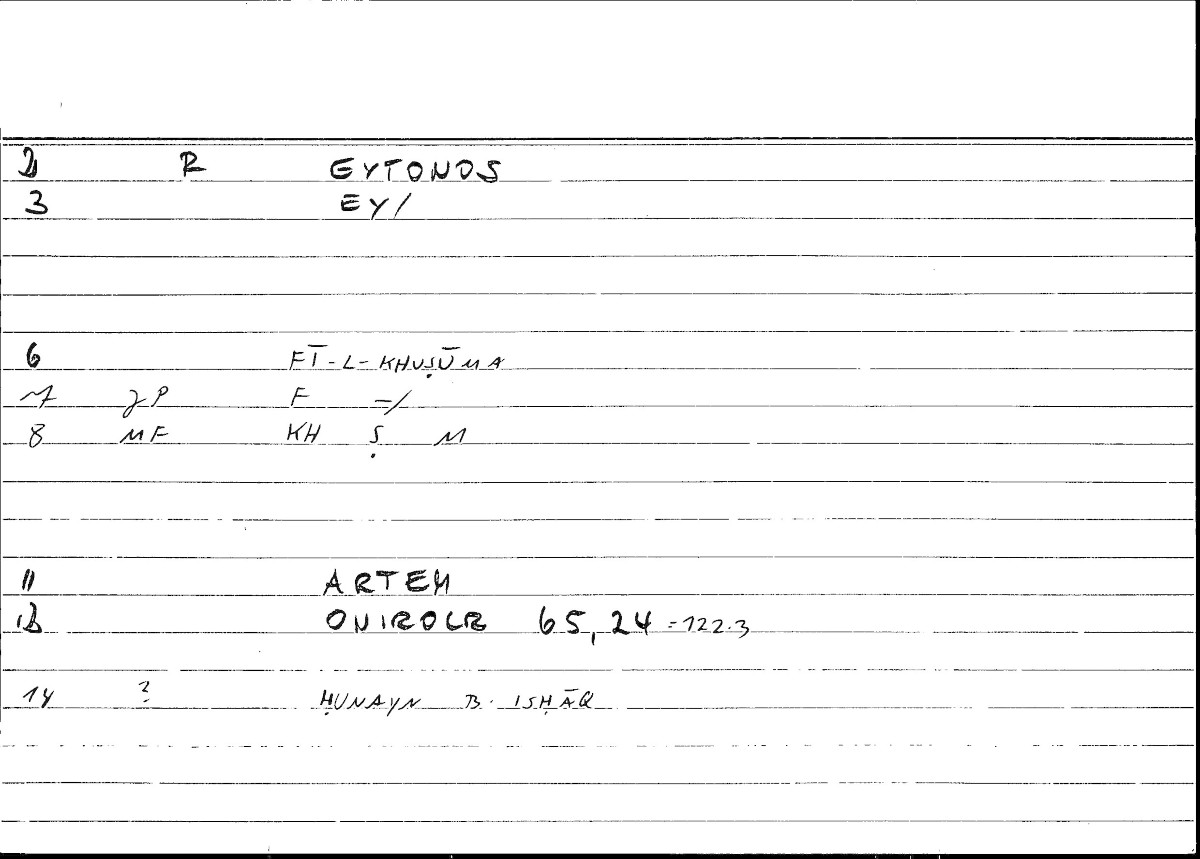 2 R EYTONOS
3 EY/
6 FĪ-L-KHUṢŪMA
7 JP F =/
8 MF KH Ṣ M
11 ARTEM
12 ONIROCR 65,24 =122.3
14 ? ḤUNAYN B. ISḤĀQ